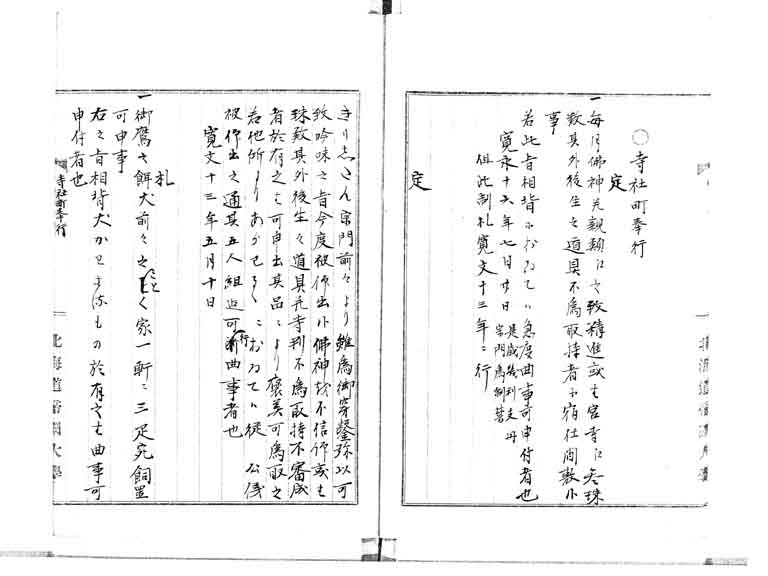 〇寺社町奉行
定
一毎月佛神并親類江之致精進或者宮寺江参珠
数其外後生之道具不為取持者不宿仕間敷
事
若此旨相背におゐてハ急度曲事可申付者也
寛永十六年七月廿日
宗門為制禁
但此制札寛文十三年ニ行
定
きりしたん宗門前々より雖為御穿鑿弥以可
致吟味之旨今度被仰出候佛神を不信仰或者
珠数其外後生之道具并寺判不為取持不審成
者於有之者可申出其品ニより褒美可為取之
若他所よりあらはるゝニおゐてハ従公儀
被仰出之通其五人組迄可行曲事者也
寛文十三年五月十日
札
一御鷹之餌犬前々之ことく家一軒ニ三疋宛飼置
可申事
右之旨相背犬かこさるもの於有之者曲事可
申付者也
寺社町奉行
北海道帝國大學